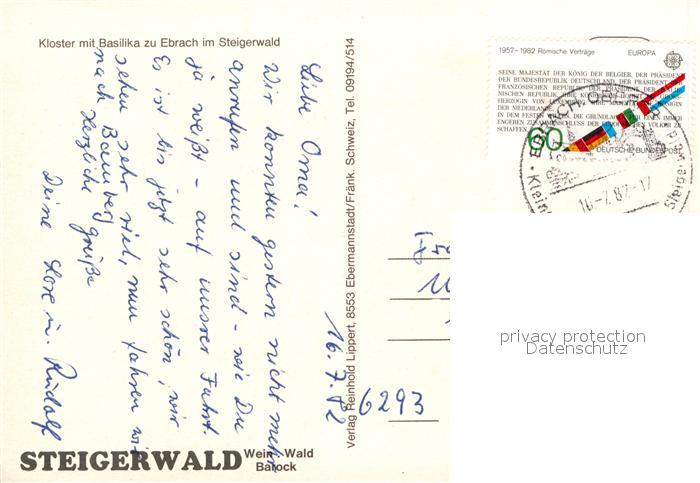 Kloster mit Basilika zu Ebrach im Steigerwald
16.7.82
Liebe Oma!
Wir konnten gestern nicht mehr
anrufen und sind – wie Du
ja weißt – auf unsrer Fahrt.
Es ist bis jetzt sehr schön, wir
sehen sehr viel, nun fahren wir
nach Bamberg
Herzliche Grüße
Deine Lore u. Rudolf
STEIGERWALD Wein Wald
Barock
Verlag Reinhold Lippert, 8553 Ebermannstadt/Fränk. Schweiz, Tel. 09194/514
1957-1982 Römische Verträge EUROPA
SEINE MAJESTÄT DER KÖNIG DER BELGIER, DER PRÄSIDENT
DER BUNDESREPUBLIK DEUTSCHLAND, DER PRÄSIDENT DER
FRANZÖSISCHEN REPUBLIK, DER PRÄSIDENT DER
NISCHEN REPUBLIK, IHRE
HERZOGIN VON LUXEMBURG, IHRE MAJESTÄT DIE KÖNIGIN
DER NIEDERLANDE,
IN DEM FESTEN WILLEN, DIE GRUNDLAGEN FÜR EINEN IMMER
ENGEREN ZUSAMMENSCHLUSS DER EUROPÄISCHEN VÖLKER ZU
SCHAFFEN,
60
DEUTSCHE BUNDESPOST
16.-7.82-17
6293
privacy protection
Datenschutz